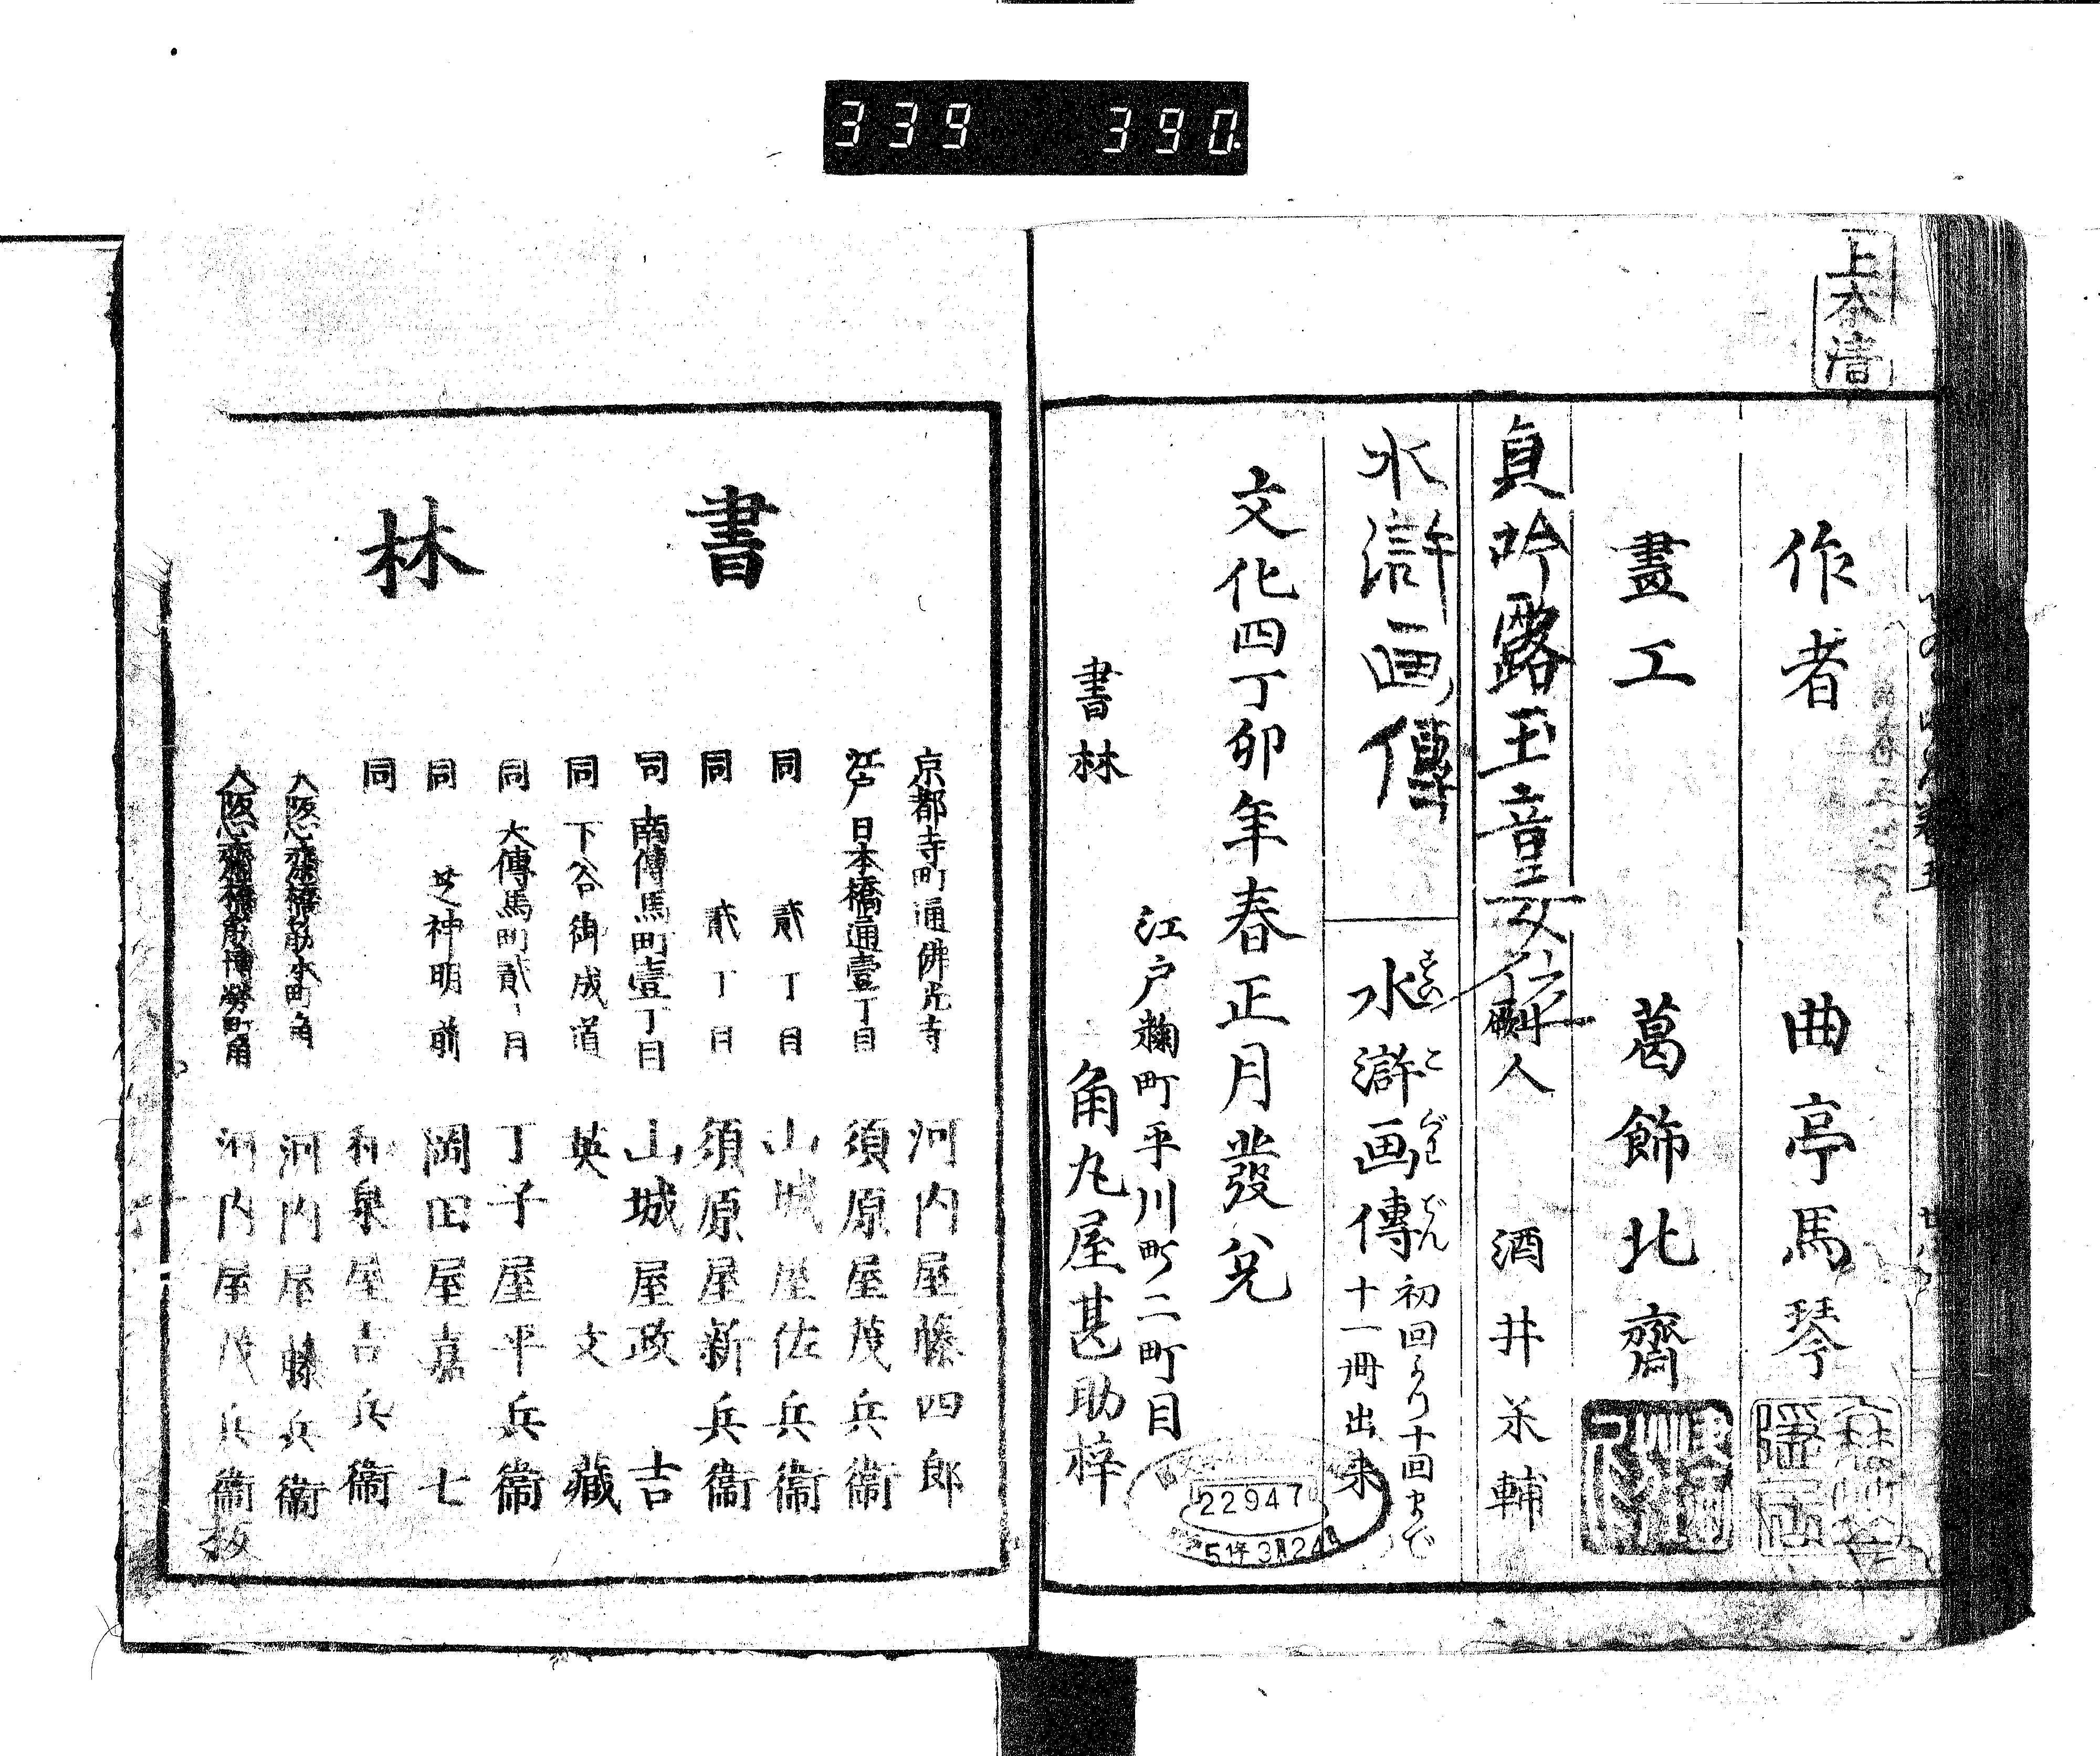 339 390
上木清
作者 曲亭馬琴
畫工 葛飾北齋
貞吟露玉童女位
酒井米輔
水滸画傳
水滸画傳 初回より十回まで
十一冊出来
すゐこぐわでん
文化四丁卯年春正月發兌
江戸麹町平川町二町目
書林 角丸屋甚助梓
22947
51年3月24
書林
京都寺町通佛光寺 河内屋藤四郎
江戸日本橋通壹丁目 須原屋茂兵衞
同 貳丁目 山城屋佐兵衞
同 貳丁目 須原屋新兵衞
同 南傳馬町壹丁目 山城屋政吉
同 下谷御成道 英文藏
同 大傳馬町貳丁目 丁子屋平兵衞
同 芝神明前 岡田屋嘉七
同 和泉屋吉兵衞
大阪心齋橋筋本町角 河内屋藤兵衞
大阪心齋橋筋博勞町角 河内屋茂兵衞
板